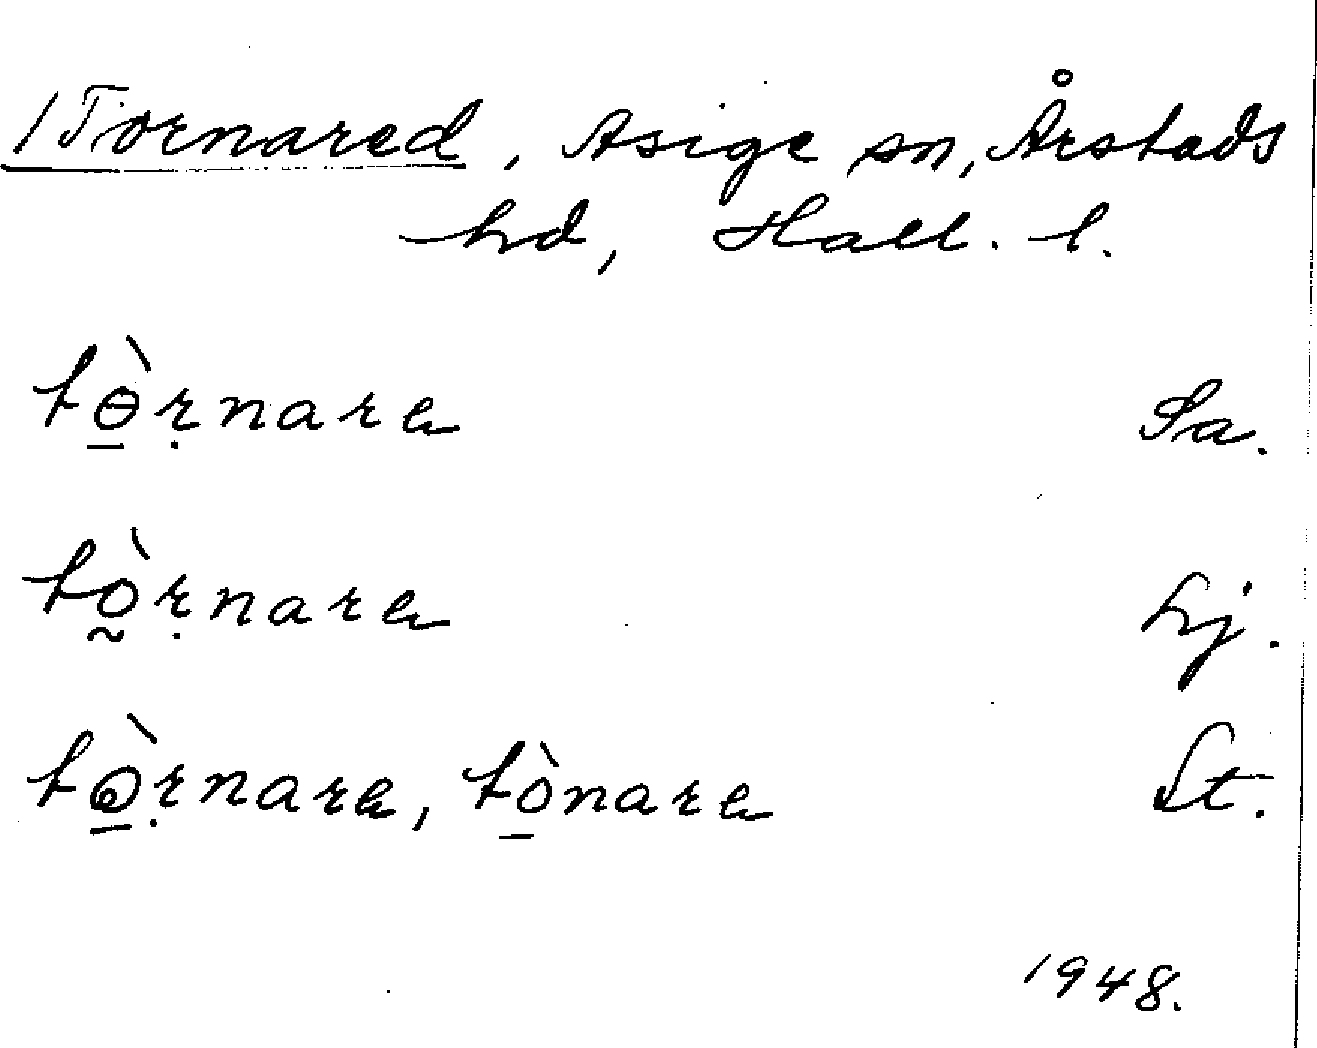 1 Tornared, Asige sn, Årstads
hd, Hall. l.
tɵ̱̀ṛnare Sa.
tò̰ṛnare Lj.
tò̱ṛnare, tò̱nare St.
1948.